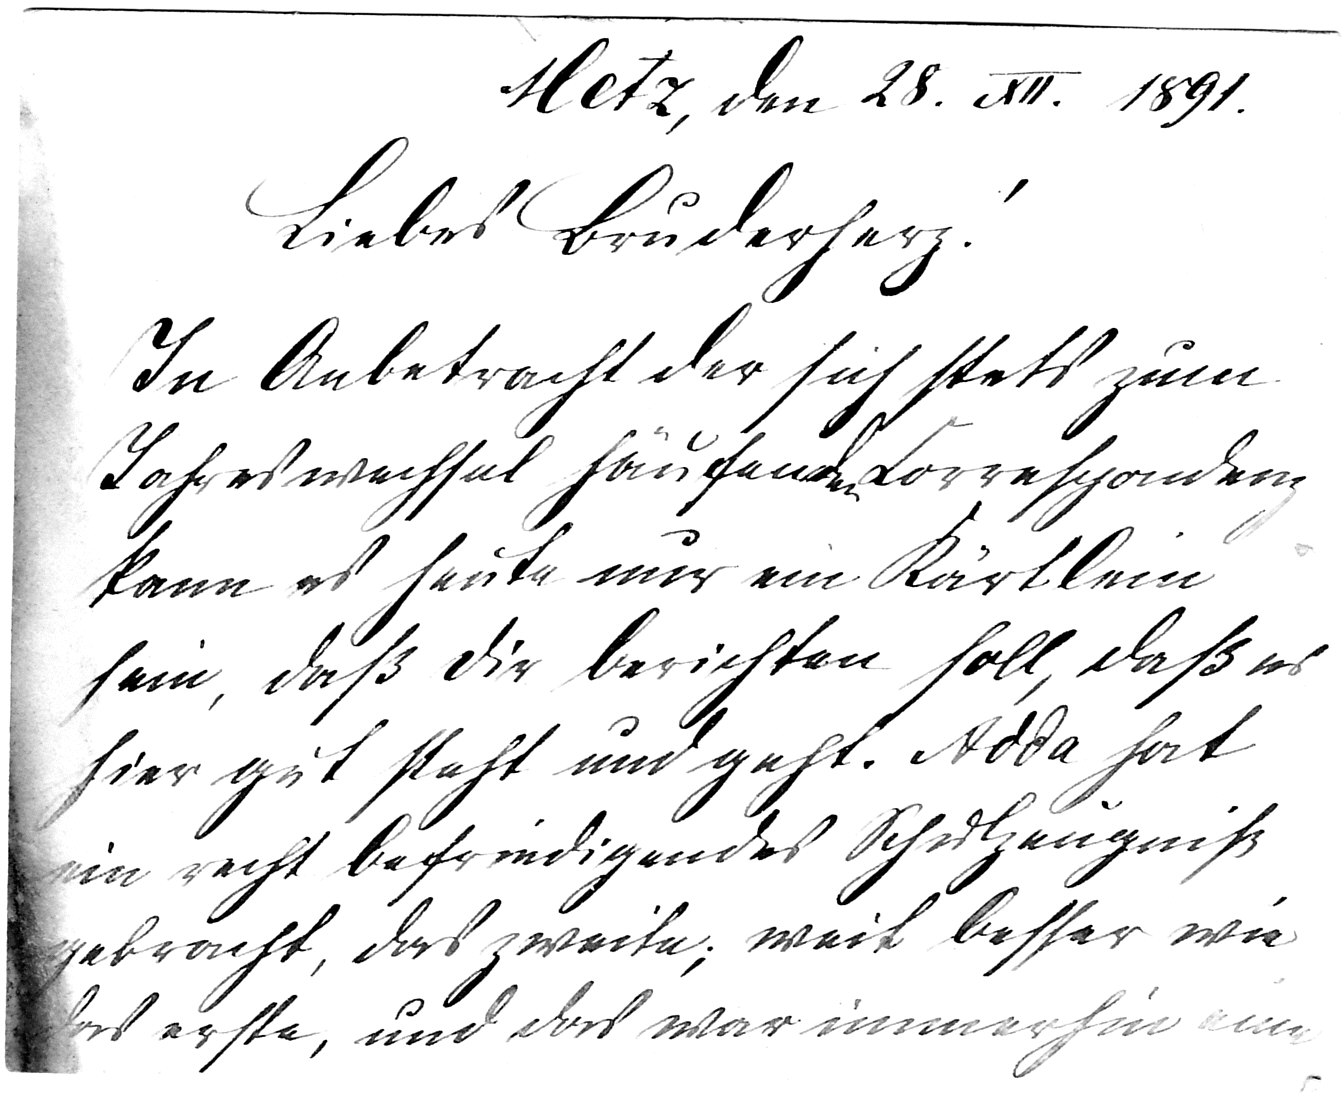 Metz, den 28. XII. 1891.
Liebes Bruderherz!
In Anbetracht der sich stets zum
Jahreswechsel häufenden Correspondenz
kann es heute nur ein Kärtlein
sein, daß Dir berichten soll, daß es
hier gut steht und geht. Adda hat
ein recht befriedigendes Schulzeugniß
gebracht, das zweite; weit besser wie
das erste, und das war immerhin eine